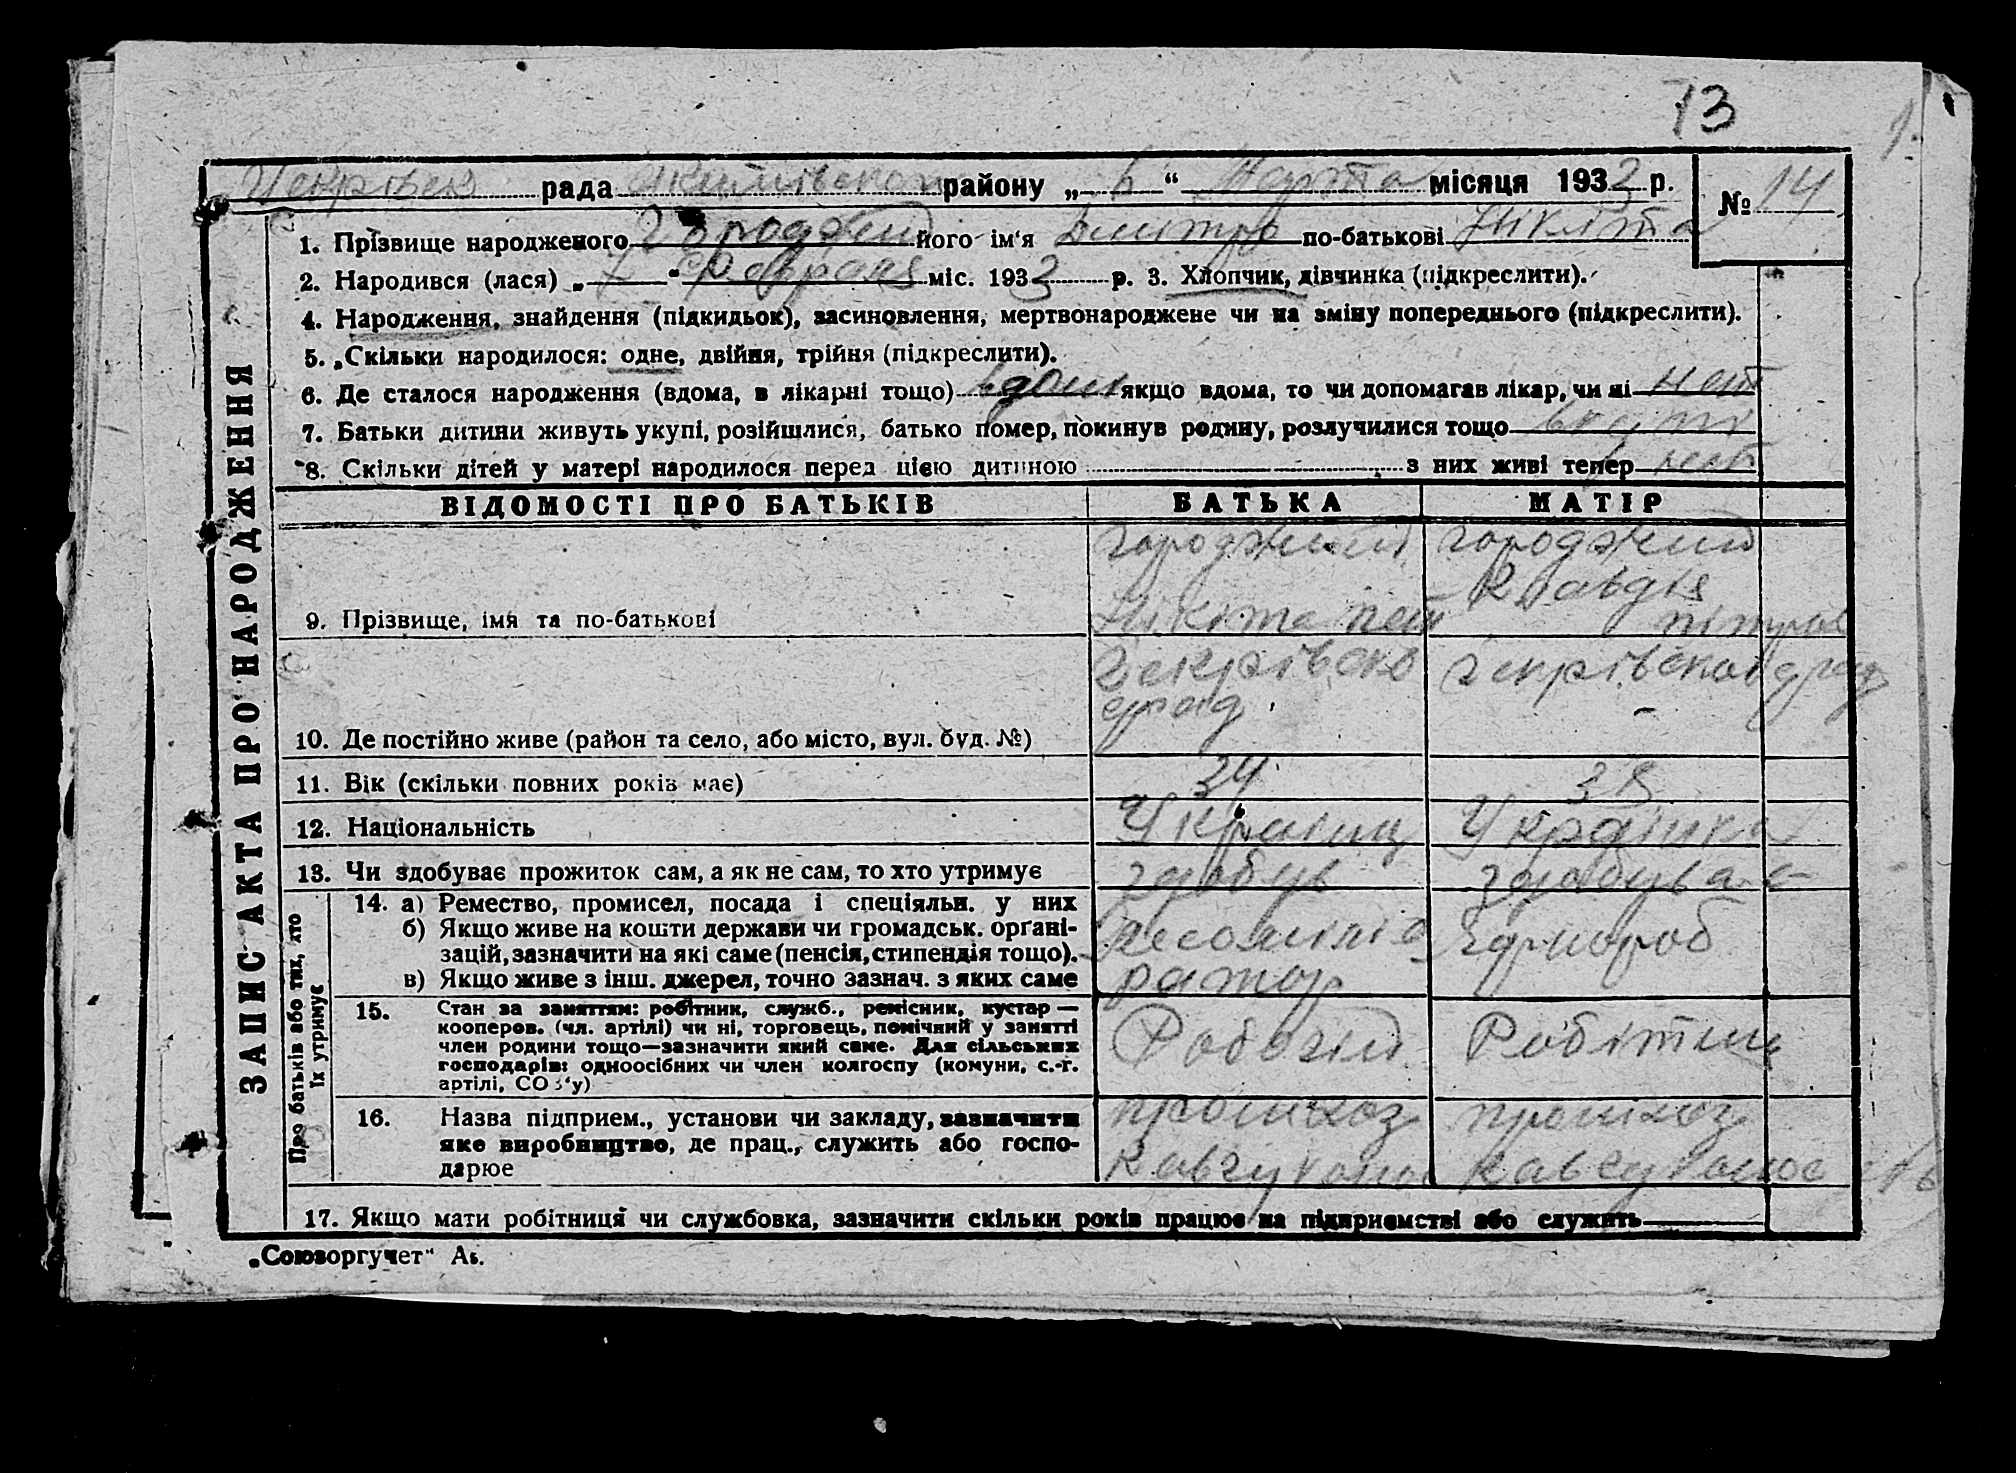 73
рада Якимівськои району „ 6 “ Марта місяця 1932 р. № 14
1. Прізвище народженого Городжий його ім‘я Дмитро по-батькові Нікіта
2. Народився (лася) „ 7 “ Февраля міс. 1932 р. 3. Хлопчик, дівчинка (підкреслити).
4. Народження, знайдення (підкидьок), засиновлення, мертвонароджене чи на зміну попереднього (підкреслити).
5. Скільки народилося: одне, двійня, трійня (підкреслити).
6. Де сталося народження (вдома, в лікарні тощо) вдома якщо вдома, то чи допомагав лікар, чи ні нет
7. Батьки дитини живуть укупі, розійшлися, батько помер, покинув родину, розлучилися тощо
8. Скільки дітей у матері народилося перед цією дитиною з них живі тепер
ЗАПИС АКТА ПРО НАРОДЖЕННЯ
ВІДОМОСТІ ПРО БАТЬКІВ БАТЬКА МАТІР
Городжий Городжий
Клавдія
9. Прізвище, імя та по-батькові Нікіта пет пітров
10. Де постійно живе (район та село, або місто, вул. буд. №)
11. Вік (скільки повних років має) 34 38
12. Національність Украінц Украінка
13. Чи здобуває прожиток сам, а як не сам, то хто утримує
Про батьків або тих, хто
їх утримує
14. а) Ремество, промисел, посада і спеціяльн. у них
б) Якщо живе на кошти держави чи громадськ. орґані-
зацій, зазначити на які саме (пенсія, стипендія тощо). Чорнороб
в) Якщо живе з інш. джерел, точно зазнач. з яких саме
15. Стан за заняттям: робітник, служб., ремісник, кустар —
кооперов. (чл. артілі) чи ні, торговець, помічний у занятті
член родини тощо—зазначити який саме. Для сільських Рабочій Робітниц
господарів: одноосібних чи член колгоспу (комуни, с.-г.
артілі, СОЗ‘у)
16. Назва підприєм., установи чи закладу, зазначити промхоз промхоз
яке виробництво, де прац., служить або госпо-
дарює Кавчуконос Кавчуконос
17. Якщо мати робітниця чи службовка, зазначити скільки років працює на підприємстві або служить
„Союзоргучет“